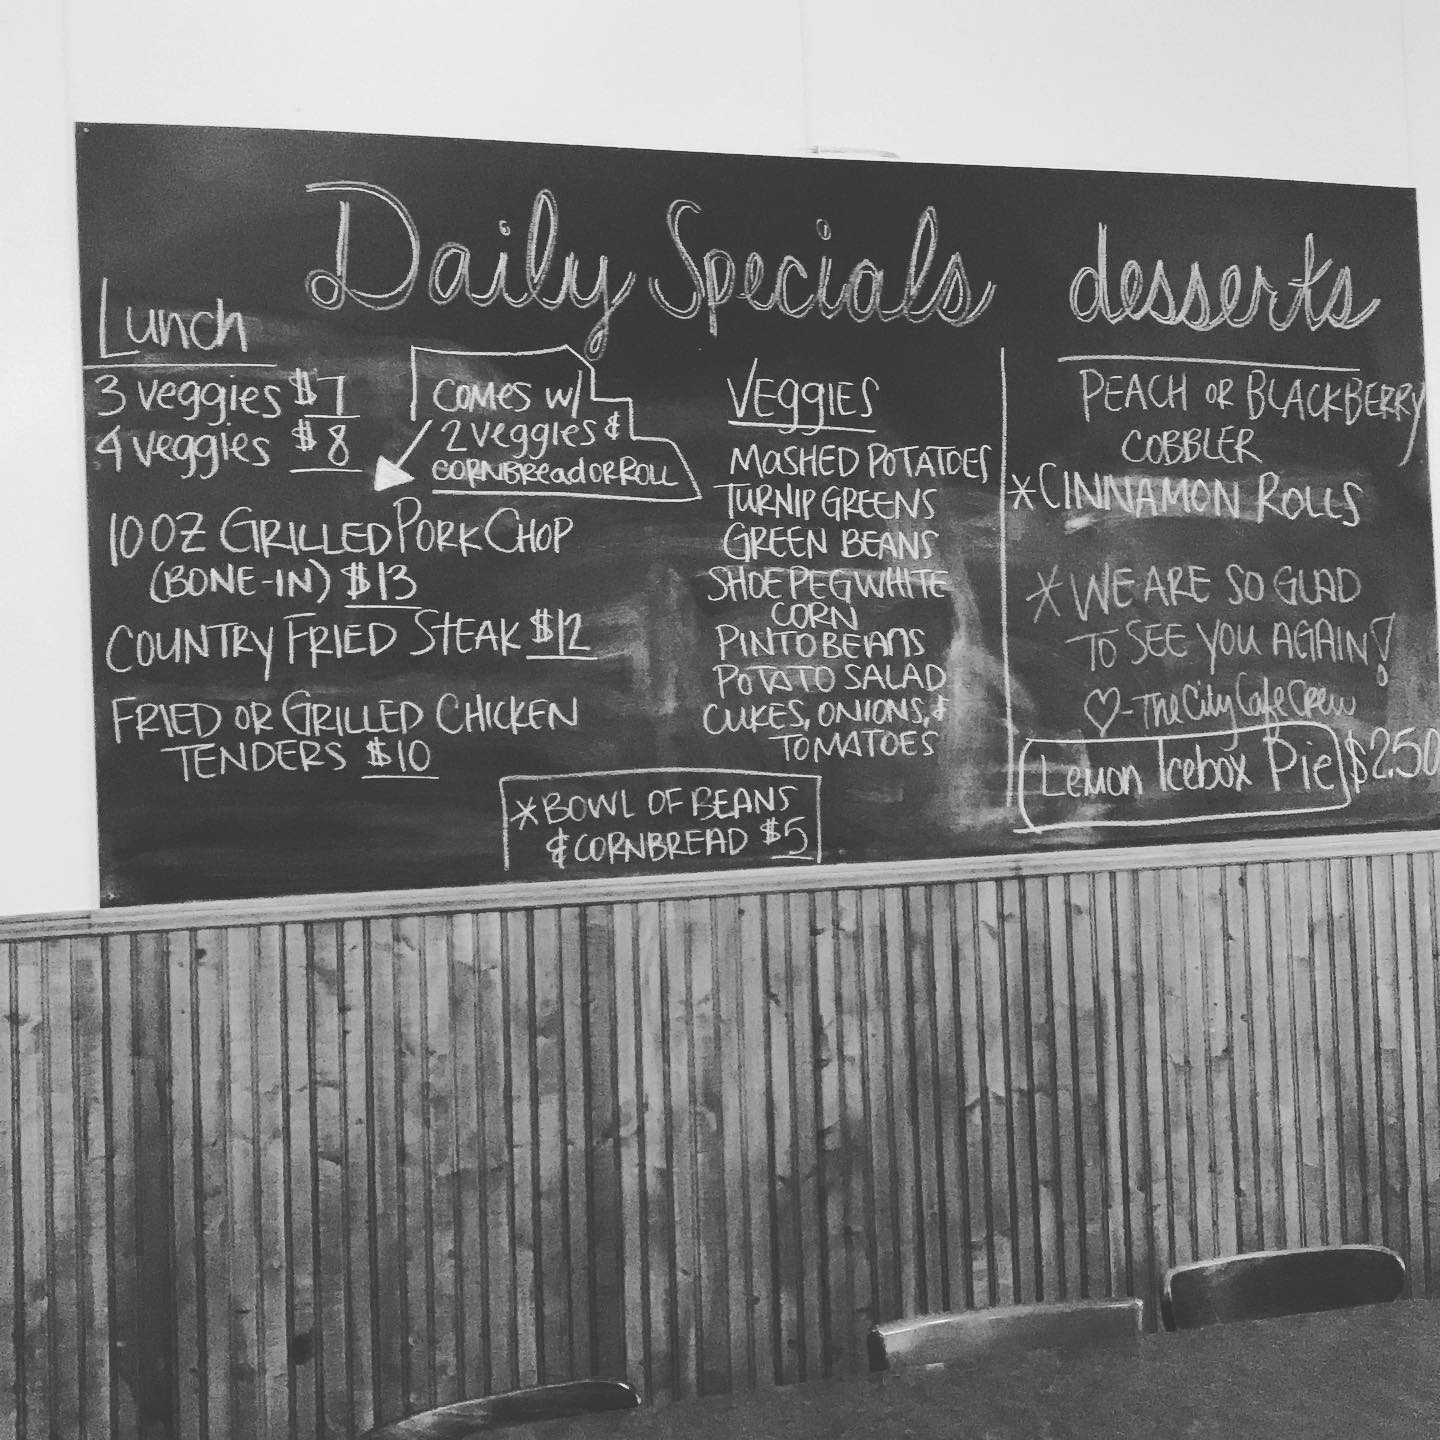 Daily Specials
Lunch
3 veggies $7
4 veggies $8
COMES W/
2 veggies &
CORNBREAD OR ROLL
10 OZ GRILLED PORK CHOP
(BONE-IN) $13
COUNTRY FRIED STEAK $12
FRIED OR GRILLED CHICKEN
TENDERS $10
*BOWL OF BEANS
& CORNBREAD $5
VEGGIES
MASHED POTATOES
TURNIP GREENS
GREEN BEANS
SHOEPEG WHITE
CORN
PINTO BEANS
POTATO SALAD
CUKES, ONIONS, &
TOMATOES
desserts
PEACH OR BLACKBERRY
COBBLER
*CINNAMON ROLLS
*WE ARE SO GLAD
TO SEE YOU AGAIN!
♡-The City Cafe Crew
Lemon Icebox Pie $2.50